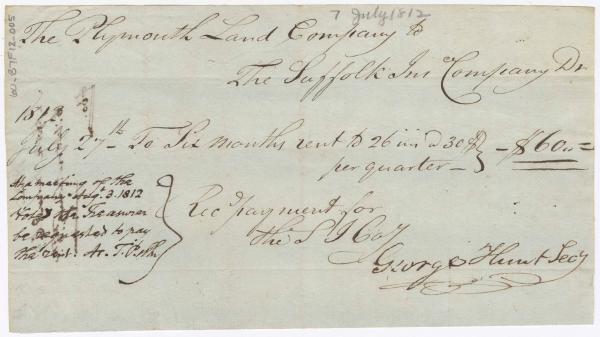 7 July 1812
The Plymouth Land Company to
The Suffolk Ins Company Dr
1812
July 27th To Six months rent to 26 in d 30$ } - $60 =
per quarter -
At a meeting of the
Company Augt. 3. 1812
Voted the Treasurer
be requested to pay
the rent. At.
Rec payment for
the S I Coy
George Hunt Secy
6v-87F12-005